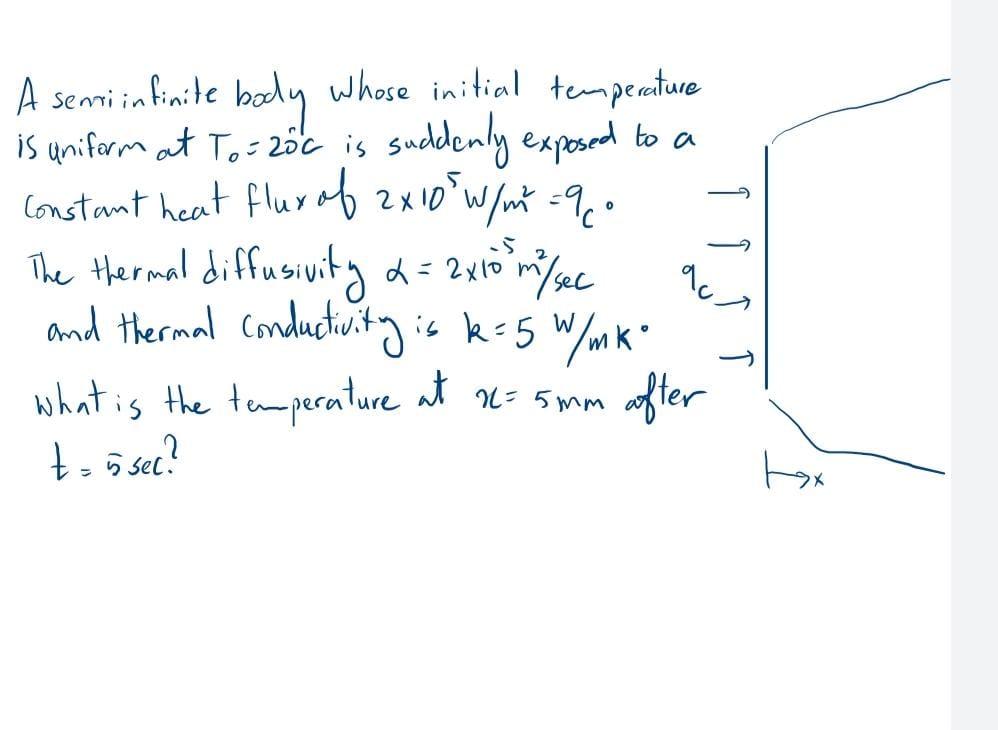 A semi infinite body whose initial temperature
is uniform at T₀ = 20°C is suddenly exposed to a
Constant heat flux of 2 x 10⁵ W/m² = qc.
The thermal diffusivity α = 2x10⁻⁵ m²/sec
qc
and thermal conductivity is k = 5 W/mK.
What is the temperature at x = 5 mm after
t = 5 sec?
x